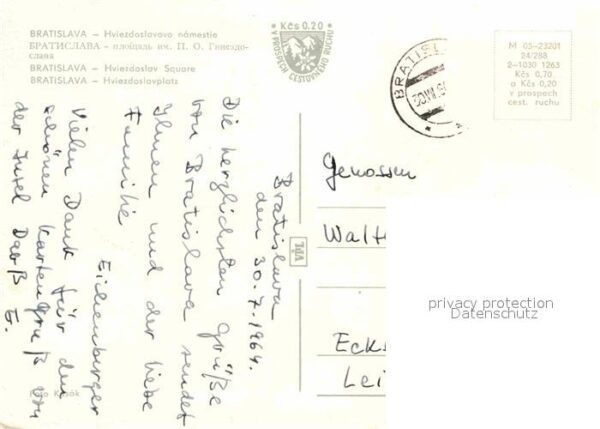 BRATISLAVA – Hviezdoslavovo námestie
БРАТИСЛАВА – площадь им. П. О. Гвиездо-
слава
BRATISLAVA – Hviezdoslav Square
BRATISLAVA – Hviezdoslavplatz
Kčs 0,20
V PROSPECH CESTOVNÉHO RUCHU
BRATISL
M 05-23201
24/288
2-1030 1263
Kčs 0,70
a Kčs 0,20
v prospech
cest. ruchu
Bratislava
den 30.7.1964.
Die herzlichsten Grüße
von Bratislava sendet
Ihnen und der liebe
Familie
Eichenburger
Vielen Dank für den
schönen Kartengruß von
der Insel Darß
E.
Genossen
Walt
Eck
Lei
privacy protection
Datenschutz